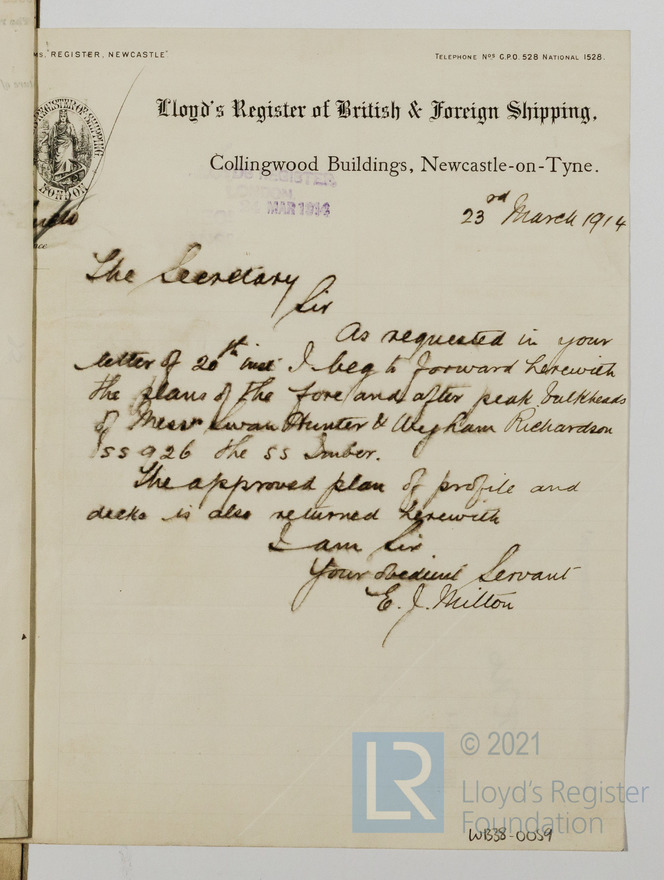 MS, "REGISTER, NEWCASTLE"
TELEPHONE Nos G.P.O. 528 NATIONAL 1528.
Lloyd's Register of British & Foreign Shipping,
Collingwood Buildings, Newcastle-on-Tyne.
REGISTER OF SHIPPING
LONDON
REGISTER
MAR 1914
23rd March 1914
The Secretary
Sir
As requested in your
letter of 20th inst I beg to forward herewith
the plans of the fore and after peak bulkheads
of Messrs Swan Hunter & Wigham Richardson
SS 926 the SS Imber.
The approved plan of profile and
decks is also returned herewith
I am Sir
Your obedient Servant
E. J. Milton
LR
© 2021
Lloyd's Register
Foundation
WB38-0059